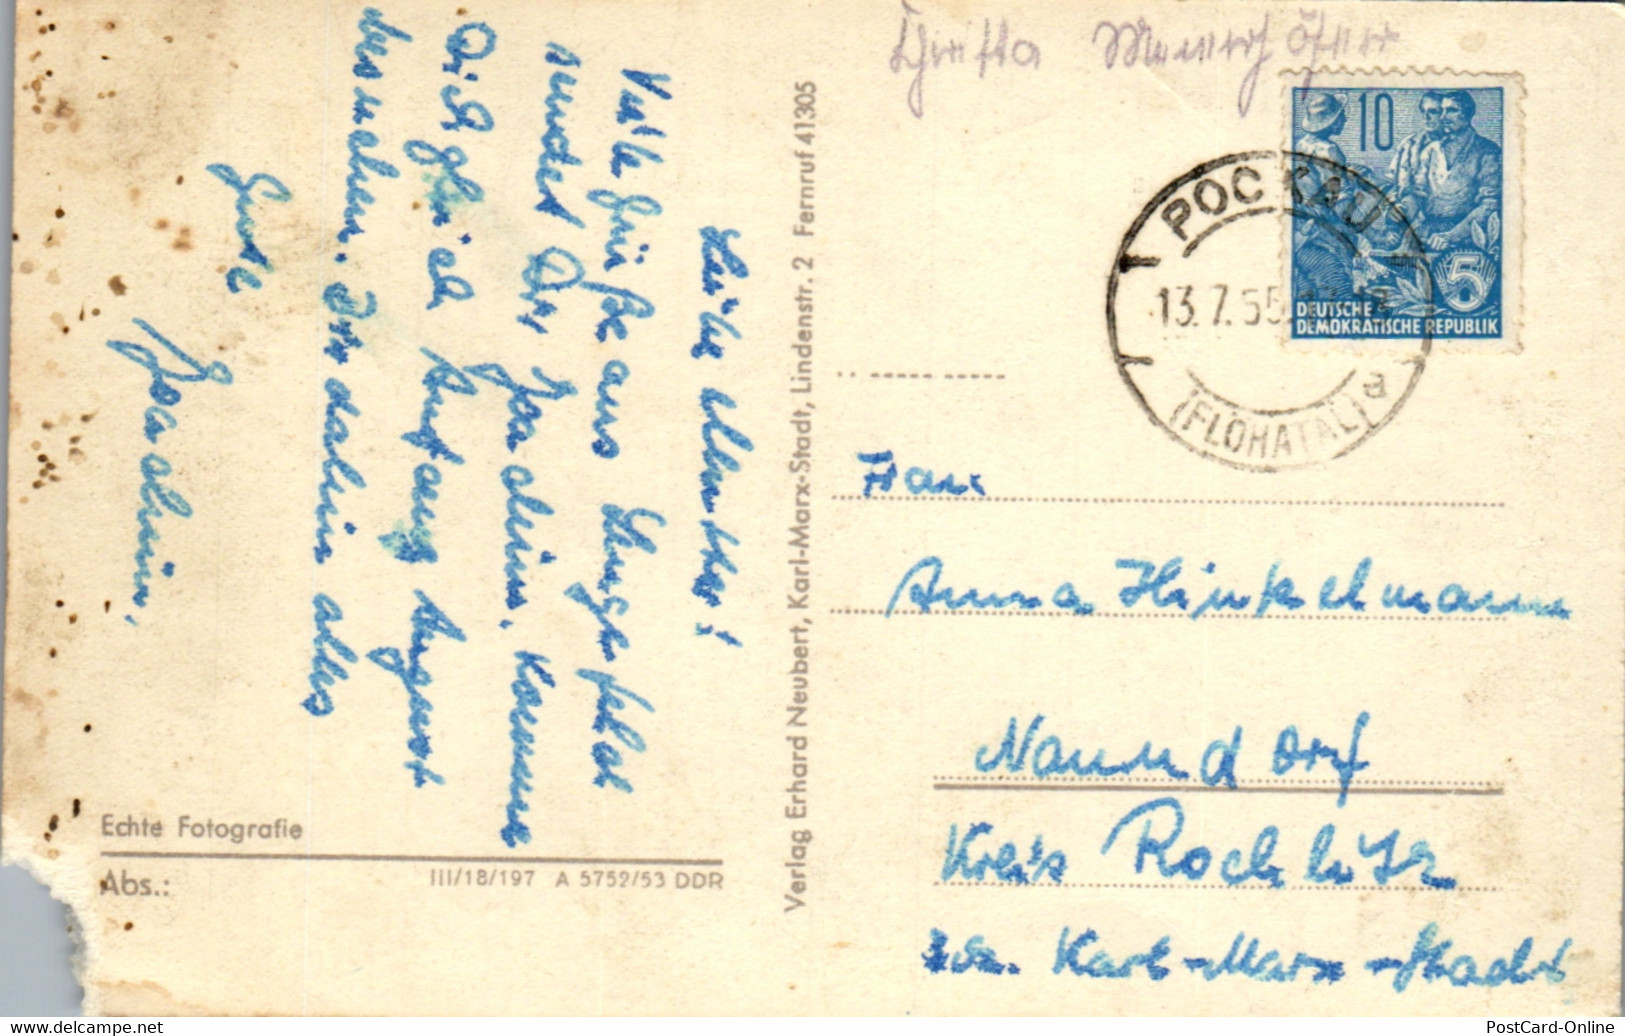 Liebe Mutter!
Viele Grüße aus Lengefeld
sendet Dir, Joachim. Komme
Dich gleich Anfang August
besuchen. Ist daheim alles
Gute
Joachim.
Echte Fotografie
Abs.:
III/18/197 A 5752/53 DDR
Verlag Erhard Neubert, Karl-Marx-Stadt, Lindenstr. 2 Fernruf 41305
10
5
DEUTSCHE
DEMOKRATISCHE REPUBLIK
POCKAU
13.7.55
(FLÖHATAL) a
Frau
Anna Hinkelmann
Naundorf
Kreis Rochlitz
Bez. Karl-Marx-Stadt
PostCard-Online